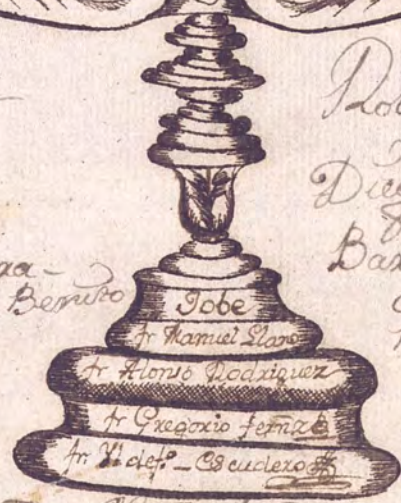 Benito
Jobe
fr Manuel Llano
fr Alonso Rodriguez
fr Gregorio fernz
fr Yldefo - Escudero